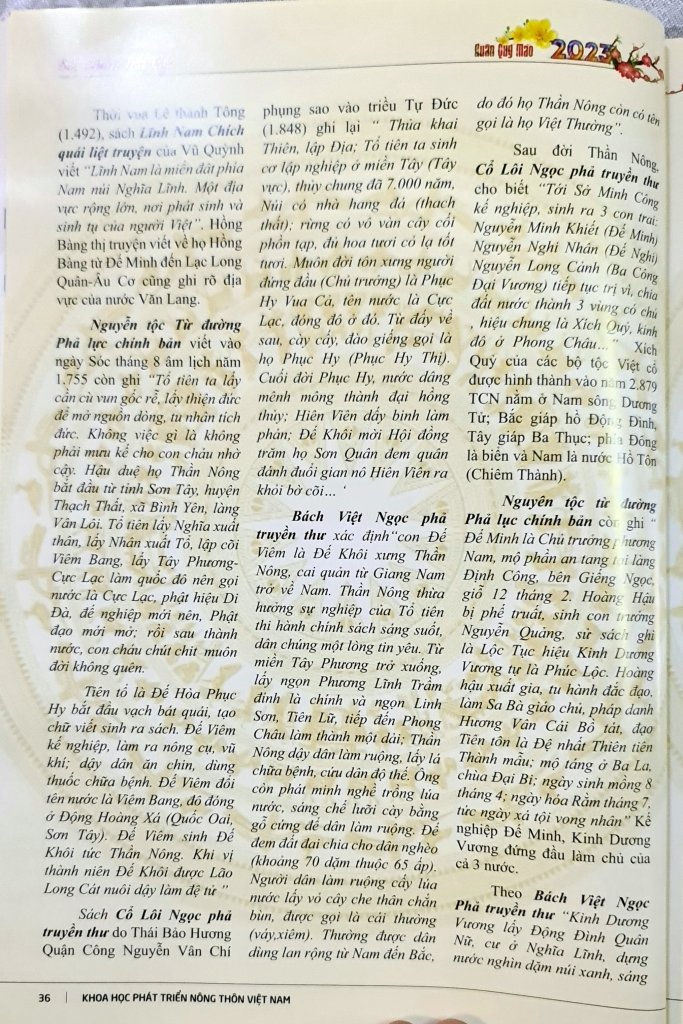 Xuân Quý Mão 2023
Thời vua Lê thanh Tông
(1.492), sách Lĩnh Nam Chích
quái liệt truyện của Vũ Quỳnh
viết “Lĩnh Nam là miền đất phía
Nam núi Nghĩa Lĩnh. Một địa
vực rộng lớn, nơi phát sinh và
sinh tụ của người Việt”. Hồng
Bàng thị truyện viết về họ Hồng
Bàng từ Đế Minh đến Lạc Long
Quân-Âu Cơ cũng ghi rõ địa
vực của nước Văn Lang.
Nguyễn tộc Từ đường
Phả lực chính bản viết vào
ngày Sóc tháng 8 âm lịch năm
1.755 còn ghi “Tổ tiên ta lấy
cần cù vun gốc rễ, lấy thiện đức
để mở nguồn dòng, tu nhân tích
đức. Không việc gì là không
phải mưu kế cho con cháu nhờ
cậy. Hậu duệ họ Thần Nông
bắt đầu từ tỉnh Sơn Tây, huyện
Thạch Thất, xã Bình Yên, làng
Vân Lôi. Tổ tiên lấy Nghĩa xuất
thân, lấy Nhân xuất Tổ, lập cõi
Viêm Bang, lấy Tây Phương-
Cực Lạc làm quốc đô nên gọi
nước là Cực Lạc, phật hiệu Di
Đà, đế nghiệp mới nên, Phật
đạo mới mở; rồi sau thành
nước, con cháu chút chit muôn
đời không quên.
Tiên tổ là Đế Hòa Phục
Hy bắt đầu vạch bát quái, tạo
chữ viết sinh ra sách. Đế Viêm
kế nghiệp, làm ra nông cụ, vũ
khí; dậy dân ăn chín, dùng
thuốc chữa bệnh. Đế Viêm đổi
tên nước là Viêm Bang, đô đóng
ở Động Hoàng Xá (Quốc Oai,
Sơn Tây). Đế Viêm sinh Đế
Khôi tức Thần Nông. Khi vị
thành niên Đế Khôi được Lão
Long Cát nuôi dậy làm đệ tử ”
Sách Cổ Lôi Ngọc phả
truyền thư do Thái Bảo Hương
Quận Công Nguyễn Vân Chí
phụng sao vào triều Tự Đức
(1.848) ghi lại “ Thủa khai
Thiên, lập Địa; Tổ tiên ta sinh
cơ lập nghiệp ở miền Tây (Tây
vực), thủy chung đã 7.000 năm,
Núi có nhà hang đá (thach
thất); rừng có vô vàn cây cối
phồn tạp, đủ hoa tươi cỏ lạ tốt
tươi. Muôn đời tôn xưng người
đứng đầu (Chủ trưởng) là Phục
Hy Vua Cả, tên nước là Cực
Lạc, đóng đô ở đó. Từ đấy về
sau, cày cấy, đào giếng gọi là
họ Phục Hy (Phục Hy Thị).
Cuối đời Phục Hy, nước dâng
mênh mông thành đại hồng
thủy; Hiên Viên dấy binh làm
phản; Đế Khôi mời Hội đồng
trăm họ Sơn Quân đem quân
đánh đuổi gian nô Hiên Viên ra
khỏi bờ cõi... ‘
Bách Việt Ngọc phả
truyền thư xác định“con Đế
Viêm là Đế Khôi xưng Thần
Nông, cai quản từ Giang Nam
trở về Nam. Thần Nông thừa
hưởng sự nghiệp của Tổ tiên
thi hành chính sách sáng suốt,
dân chúng một lòng tin yêu. Từ
miền Tây Phương trở xuống,
lấy ngọn Phương Lĩnh Trầm
đỉnh là chính và ngọn Linh
Sơn, Tiên Lữ, tiếp đến Phong
Châu làm thành một dải; Thần
Nông dậy dân làm ruộng, lấy lá
chữa bệnh, cứu dân độ thế. Ông
còn phát minh nghề trồng lúa
nước, sáng chế lưỡi cày bằng
gỗ cứng để dân làm ruộng. Đế
đem đất đai chia cho dân nghèo
(khoảng 70 dặm thuộc 65 ấp).
Người dân làm ruộng cấy lúa
nước lấy vỏ cây che thân chắn
bùn, được gọi là cái thường
(váy,xiêm). Thường được dân
dùng lan rộng từ Nam đến Bắc,
do đó họ Thần Nông còn có tên
gọi là họ Việt Thường”.
Sau đời Thần Nông,
Cổ Lôi Ngọc phả truyền thư
cho biết “Tới Sở Minh Công
kế nghiệp, sinh ra 3 con trai;
Nguyễn Minh Khiết (Đế Minh)
Nguyễn Nghi Nhân (Đế Nghi)
Nguyễn Long Cảnh (Ba Công
Đại Vương) tiếp tục trị vì, chia
đất nước thành 3 vùng có chủ
, hiệu chung là Xích Quỷ, kinh
đô ở Phong Châu...” Xich
Quỷ của các bộ tộc Việt cổ
được hình thành vào năm 2.879
TCN nằm ở Nam sông Dương
Tử; Bắc giáp hồ Động Đình,
Tây giáp Ba Thục; phía Đông
là biển và Nam là nước Hồ Tôn
(Chiêm Thành).
Nguyên tộc từ đường
Phả lục chính bản còn ghi “
Đế Minh là Chủ trưởng phương
Nam, mộ phần an tang tại làng
Định Công, bên Giếng Ngọc,
giỗ 12 tháng 2. Hoàng Hậu
bị phế truất, sinh con trưởng
Nguyễn Quảng, sử sách ghi
là Lộc Tục hiệu Kinh Dương
Vương tự là Phúc Lộc. Hoàng
hậu xuất gia, tu hành đắc đạo.
làm Sa Bà giáo chủ, pháp danh
Hương Vân Cái Bồ tát, đạo
Tiên tôn là Đệ nhất Thiên tiên
Thánh mẫu; mộ táng ở Ba La,
chùa Đại Bi; ngày sinh mồng 8
tháng 4; ngày hóa Rằm tháng 7,
tức ngày xá tội vong nhân” Kế
nghiệp Đế Minh, Kinh Dương
Vương đứng đầu làm chủ của
cả 3 nước.
Theo Bách Việt Ngọc
Phả truyền thư “Kinh Dương
Vương lấy Động Đình Quân
Nữ, cư ở Nghĩa Lĩnh, dựng
nước nghìn dặm núi xanh, sáng
36 | KHOA HỌC PHÁT TRIỂN NÔNG THÔN VIỆT NAM